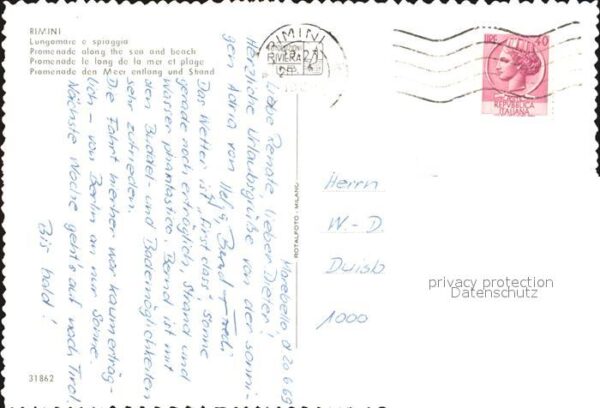 RIMINI
Lungomare e spiaggia
Promenade along the sea and beach
Promenade le long de la mer et plage
Promenade den Meer entlang und Strand
RIMINI
RIVIERA
LIRE 40
REPUBBLICA
ITALIANA
Marebello, d. 20.6.69
Liebe Renate, lieber Dieter!
Herzliche Urlaubsgrüße von der sonni-
gen Adria von Bernd +
Das Wetter ist "first class", Sonne
gerade noch erträglich, Strand und
Wasser phantastico. Bernd ist mit
den Buddel- und Bademöglichkeiten
sehr zufrieden.
Die Fahrt hierher war kaum erträg-
lich - von Berlin an nur Sonne.
Nächste Woche geht's auf nach Tirol.
Bis bald!
ROTALFOTO - MILANO
Herrn
W.-D.
Duisb
1000
privacy protection
Datenschutz
31862